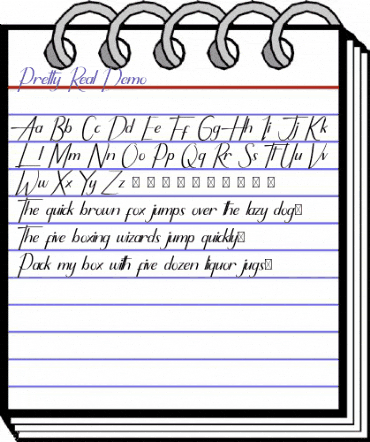 Pretty Real Demo
Aa Bb Cc Dd Ee Ff Gg Hh Ii Jj Kk
Ll Mm Nn Oo Pp Qq Rr Ss Tt Uu Vv
Ww Xx Yy Zz □ □ □ □ □ □ □ □ □ □
The quick brown fox jumps over the lazy dog□
The five boxing wizards jump quickly□
Pack my box with five dozen liquor jugs□